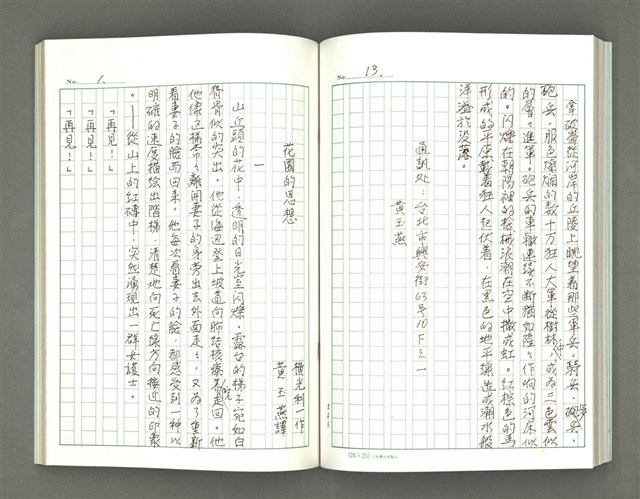 No. 13.
拿破崙從河岸的丘陵上眺望着那些軍兵。騎兵、砲兵、
砲兵,服色燦爛的数十万狂人大軍從樹林,成為三色雲似
的層々進軍。砲兵的車轍連續不断猶如隆々作响的河床似
的。閃爍在朝陽裡的槍械浪潮在空中撒成虹。红棕色的馬
形成的平原載着狂人起伏着,在黑色的地平線造成潮水般
洋溢於没落。
通訊处:台北市興安街63号10F之一
黄玉燕
(24×25)
No. 1.
花園的思想
橫光利一作
黄玉燕譯
一
山丘頭的花中,透明的日光室闪爍。露台的梯子宛如白
脊骨似的突出。他從海边登上坡道向肺结核療養院走回。他
像这樣常々離開妻子的身旁出去外面走々,又為了重新
看妻子的臉而回来。他每次看妻子的臉,都感受到一种以
明確的速度描绘出階梯,清楚地向死亡線方向接近的印象
。——從山上的红磚中,突然湧現出一群女護士。
「再見!」
「再見!」
「再見!」